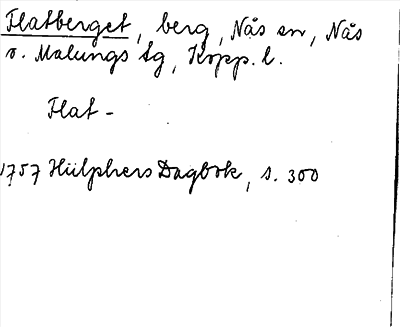 Flatberget, berg, Nås sn, Nås
o. Malungs tg, Kopp. l.
Flat-
1757 Hülphers Dagbok, s. 300